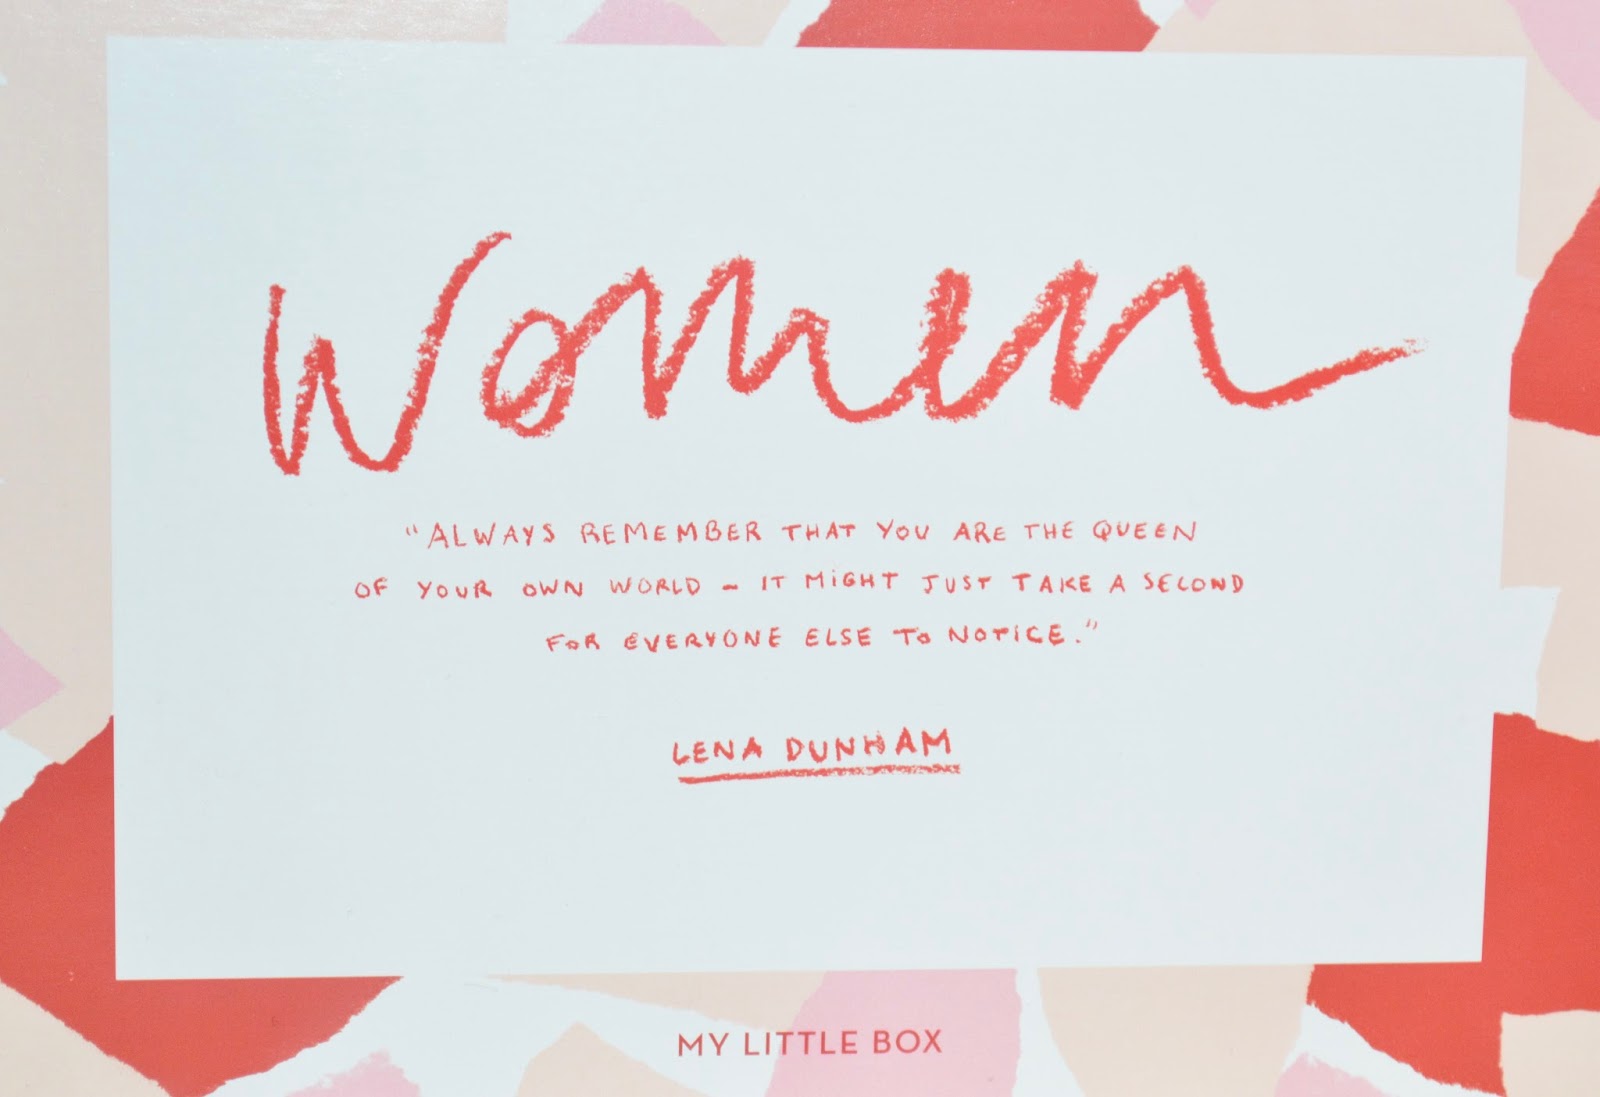 Women
"ALWAYS REMEMBER THAT YOU ARE THE QUEEN
OF YOUR OWN WORLD - IT MIGHT JUST TAKE A SECOND
FOR EVERYONE ELSE TO NOTICE."
LENA DUNHAM
MY LITTLE BOX